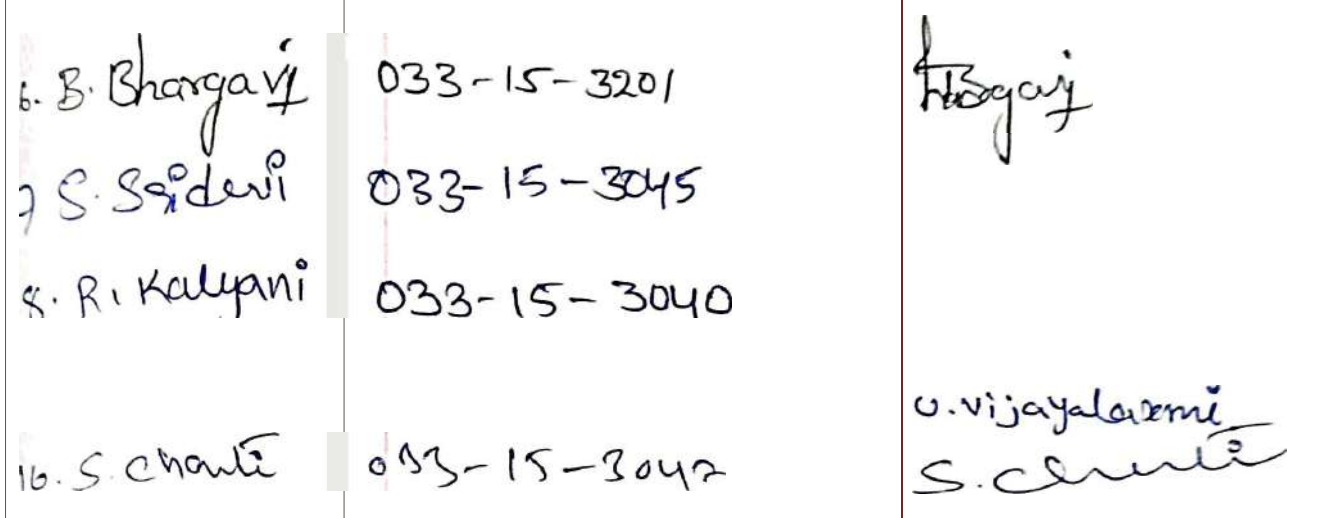 6. B. Bhargavi 033-15-3201 Bhargavi
7 S. Saidevi 033-15-3045
8. R. Kalyani 033-15-3040
U. Vijayalaxmi
16. S. Chanti 033-15-3047 S. Chanti